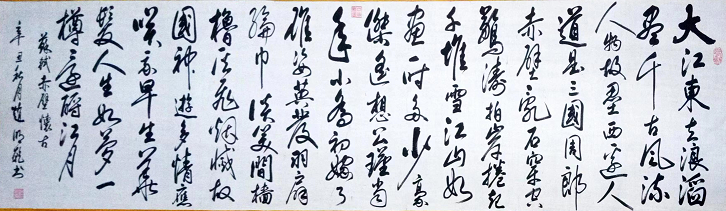 大江東去浪滔
盡千古風流
人物故壘西邊人
道是三國周郎
赤壁亂石穿空
驚濤拍岸捲起
千堆雪江山如
畫一時多少豪
傑遙想公瑾當
年小喬初嫁了
雄姿英發羽扇
綸巾談笑間檣
櫓灰飛烟滅故
國神遊多情應
笑我早生華
髮人生如夢一
樽還酹江月
蘇軾赤壁懷古
辛丑 月 書